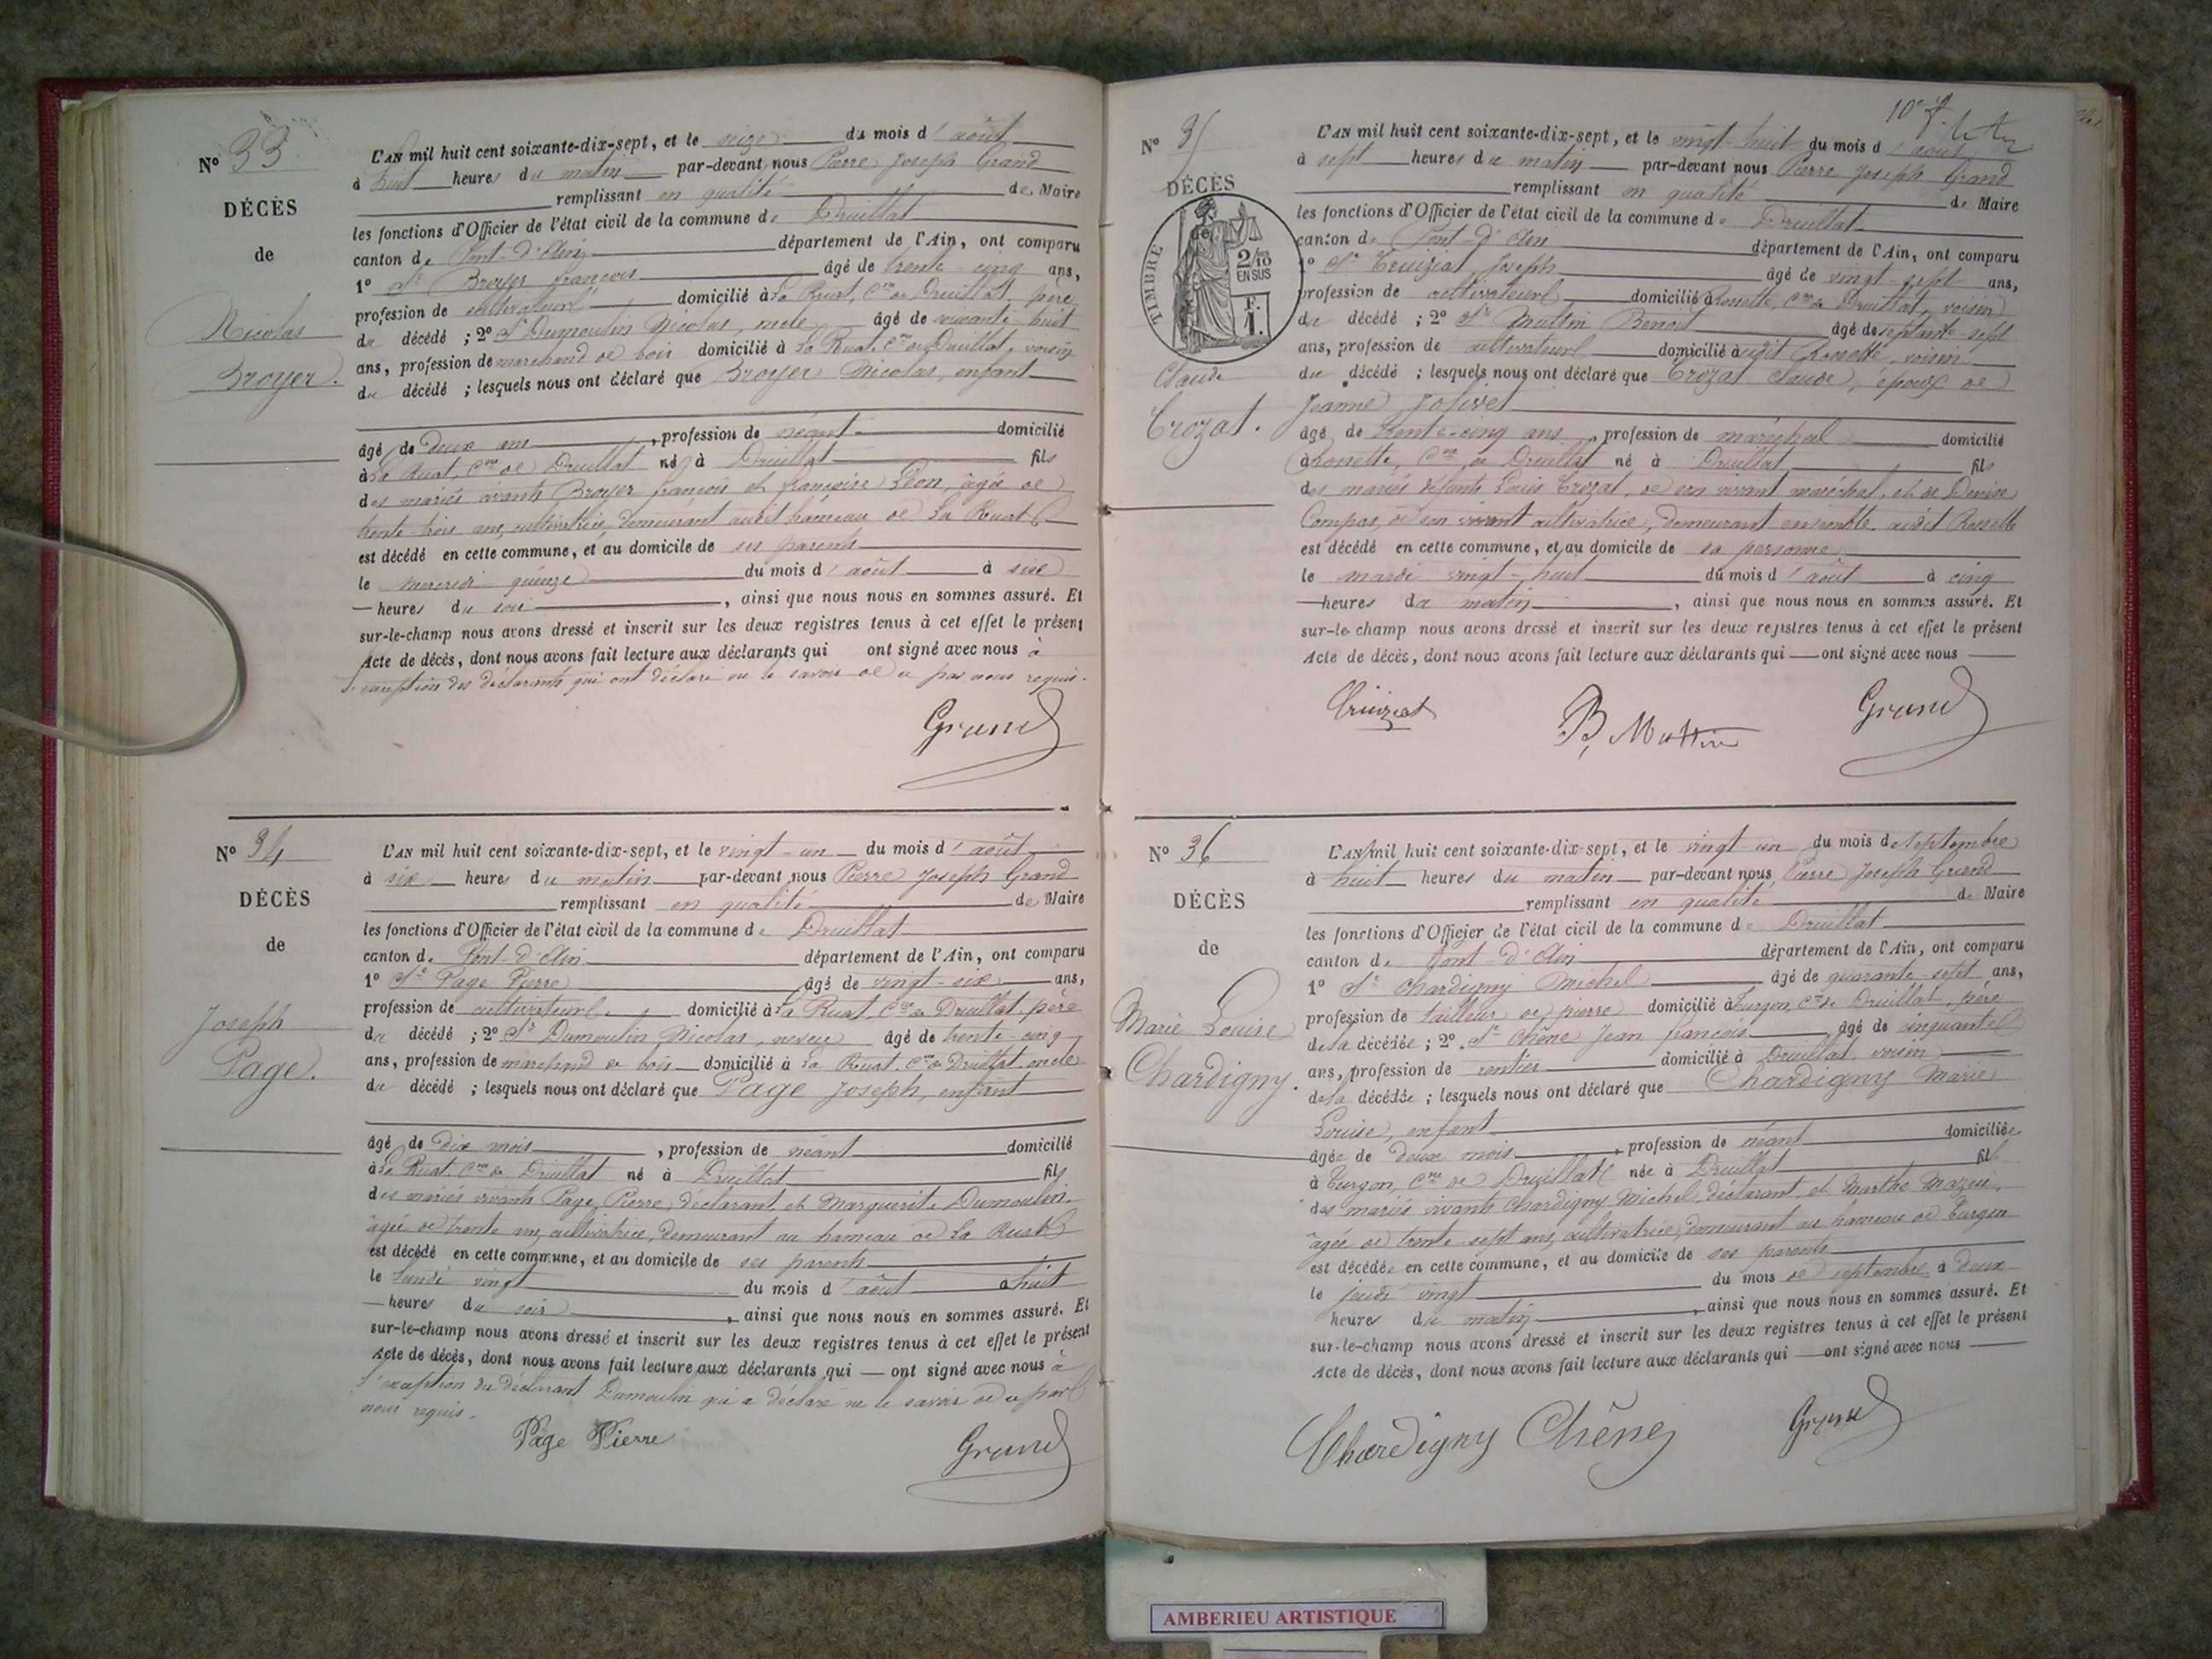 Nº 33
DÉCÈS
de
Nicolas
Broyer.
L'AN mil huit cent soixante-dix-sept, et le seize du mois d'août
à huit heures du matin par-devant nous Pierre Joseph Grand
remplissant en qualité de Maire
les fonctions d'Officier de l'état civil de la commune de Druillat
canton de Pont-d'Ain département de l'Ain, ont comparu
1º Sr Broyer françois âgé de trente-cinq ans,
profession de cultivateur domicilié à La Ruat, Cne de Druillat, père
du décédé ; 2º Sr Dumoulin Nicolas, oncle âgé de soixante-huit
ans, profession de marchand de bois domicilié à La Ruat, Cne de Druillat, voisin
du décédé ; lesquels nous ont déclaré que Broyer Nicolas, enfant
âgé de deux ans , profession de néant domicilié
à La Ruat, Cne de Druillat né à Druillat fils
des mariés vivants Broyer françois et françoise Léon, âgée de
trente-trois ans, cultivatrice, demeurant audit hameau de La Ruat
est décédé en cette commune, et au domicile de ses parents
le mercredi quinze du mois d'août à six
heures du soir , ainsi que nous nous en sommes assuré. Et
sur-le-champ nous avons dressé et inscrit sur les deux registres tenus à cet effet le présent
Acte de décès, dont nous avons fait lecture aux déclarants qui ont signé avec nous à
l'exception des déclarants qui ont déclaré ne le savoir de ce par nous requis.
Grand
Nº 34
DÉCÈS
de
Joseph
Page.
L'AN mil huit cent soixante-dix-sept, et le vingt-un du mois d'août
à six heures du matin par-devant nous Pierre Joseph Grand
remplissant en qualité de Maire
les fonctions d'Officier de l'état civil de la commune de Druillat
canton de Pont-d'Ain département de l'Ain, ont comparu
1º Sr Page Pierre âgé de vingt-six ans,
profession de cultivateur domicilié à La Ruat, Cne de Druillat, père
du décédé ; 2º Sr Dumoulin Nicolas, neveu âgé de trente-cinq
ans, profession de marchand de bois domicilié à La Ruat, Cne de Druillat, oncle
du décédé ; lesquels nous ont déclaré que Page Joseph, enfant
âgé de dix mois , profession de néant domicilié
à La Ruat, Cne de Druillat né à Druillat fils
des mariés vivants Page Pierre, déclarant, et Marguerite Dumoulin,
âgée de trente ans, cultivatrice, demeurant au hameau de La Ruat
est décédé en cette commune, et au domicile de ses parents
le lundi vingt du mois d'août à huit
heures du soir , ainsi que nous nous en sommes assuré. Et
sur-le-champ nous avons dressé et inscrit sur les deux registres tenus à cet effet le présent
Acte de décès, dont nous avons fait lecture aux déclarants qui ont signé avec nous à
l'exception du déclarant Dumoulin qui a déclaré ne le savoir de ce par
nous requis.
Page Pierre
Grand
10e f.
Nº 35
DÉCÈS
de
TIMBRE
2/10
EN SUS
F.
1.
Claude
Crozat.
L'AN mil huit cent soixante-dix-sept, et le vingt-huit du mois d'août
à sept heures du matin par-devant nous Pierre Joseph Grand
remplissant en qualité de Maire
les fonctions d'Officier de l'état civil de la commune de Druillat
canton de Pont-d'Ain département de l'Ain, ont comparu
1º Sr Cruiziat Joseph âgé de vingt-sept ans,
profession de cultivateur domicilié à Rossette, Cne de Druillat, voisin
du décédé ; 2º Sr Multin Benoit âgé de septante-sept
ans, profession de cultivateur domicilié audit Rossette, voisin
du décédé ; lesquels nous ont déclaré que Crozat Claude, époux de
Jeanne Jolivet
âgé de trente-cinq ans , profession de maréchal domicilié
à Rossette, Cne de Druillat né à Druillat fils
des mariés défunts Louis Crozat, de son vivant maréchal, et de Denise
Compas, de son vivant cultivatrice, demeurant ensemble audit Rossette
est décédé en cette commune, et au domicile de sa personne
le mardi vingt-huit du mois d'août à cinq
heures du matin , ainsi que nous nous en sommes assuré. Et
sur-le-champ nous avons dressé et inscrit sur les deux registres tenus à cet effet le présent
Acte de décès, dont nous avons fait lecture aux déclarants qui ont signé avec nous
Cruiziat
B, Multin
Grand
Nº 36
DÉCÈS
de
Marie Louise
Chardigny.
L'AN mil huit cent soixante-dix-sept, et le vingt-un du mois de septembre
à huit heures du matin par-devant nous Pierre Joseph Grand
remplissant en qualité de Maire
les fonctions d'Officier de l'état civil de la commune de Druillat
canton de Pont-d'Ain département de l'Ain, ont comparu
1º Sr Chardigny Michel âgé de quarante-sept ans,
profession de tailleur de pierre domicilié à Turgon, Cne de Druillat, père
de la décédée ; 2º Sr Chêne Jean françois âgé de cinquante
ans, profession de rentier domicilié à Druillat, voisin
de la décédée ; lesquels nous ont déclaré que Chardigny Marie
Louise, enfant
âgée de deux mois , profession de néant domiciliée
à Turgon, Cne de Druillat née à Druillat fil
des mariés vivants Chardigny Michel, déclarant, et Marthe Mazuir,
âgée de trente sept ans, cultivatrice, demeurant au hameau de Turgon
est décédée en cette commune, et au domicile de ses parents
le jeudi vingt du mois de septembre à deux
heures du matin , ainsi que nous nous en sommes assuré. Et
sur-le-champ nous avons dressé et inscrit sur les deux registres tenus à cet effet le présent
Acte de décès, dont nous avons fait lecture aux déclarants qui ont signé avec nous
Chardigny Chêne
Grand
AMBERIEU ARTISTIQUE